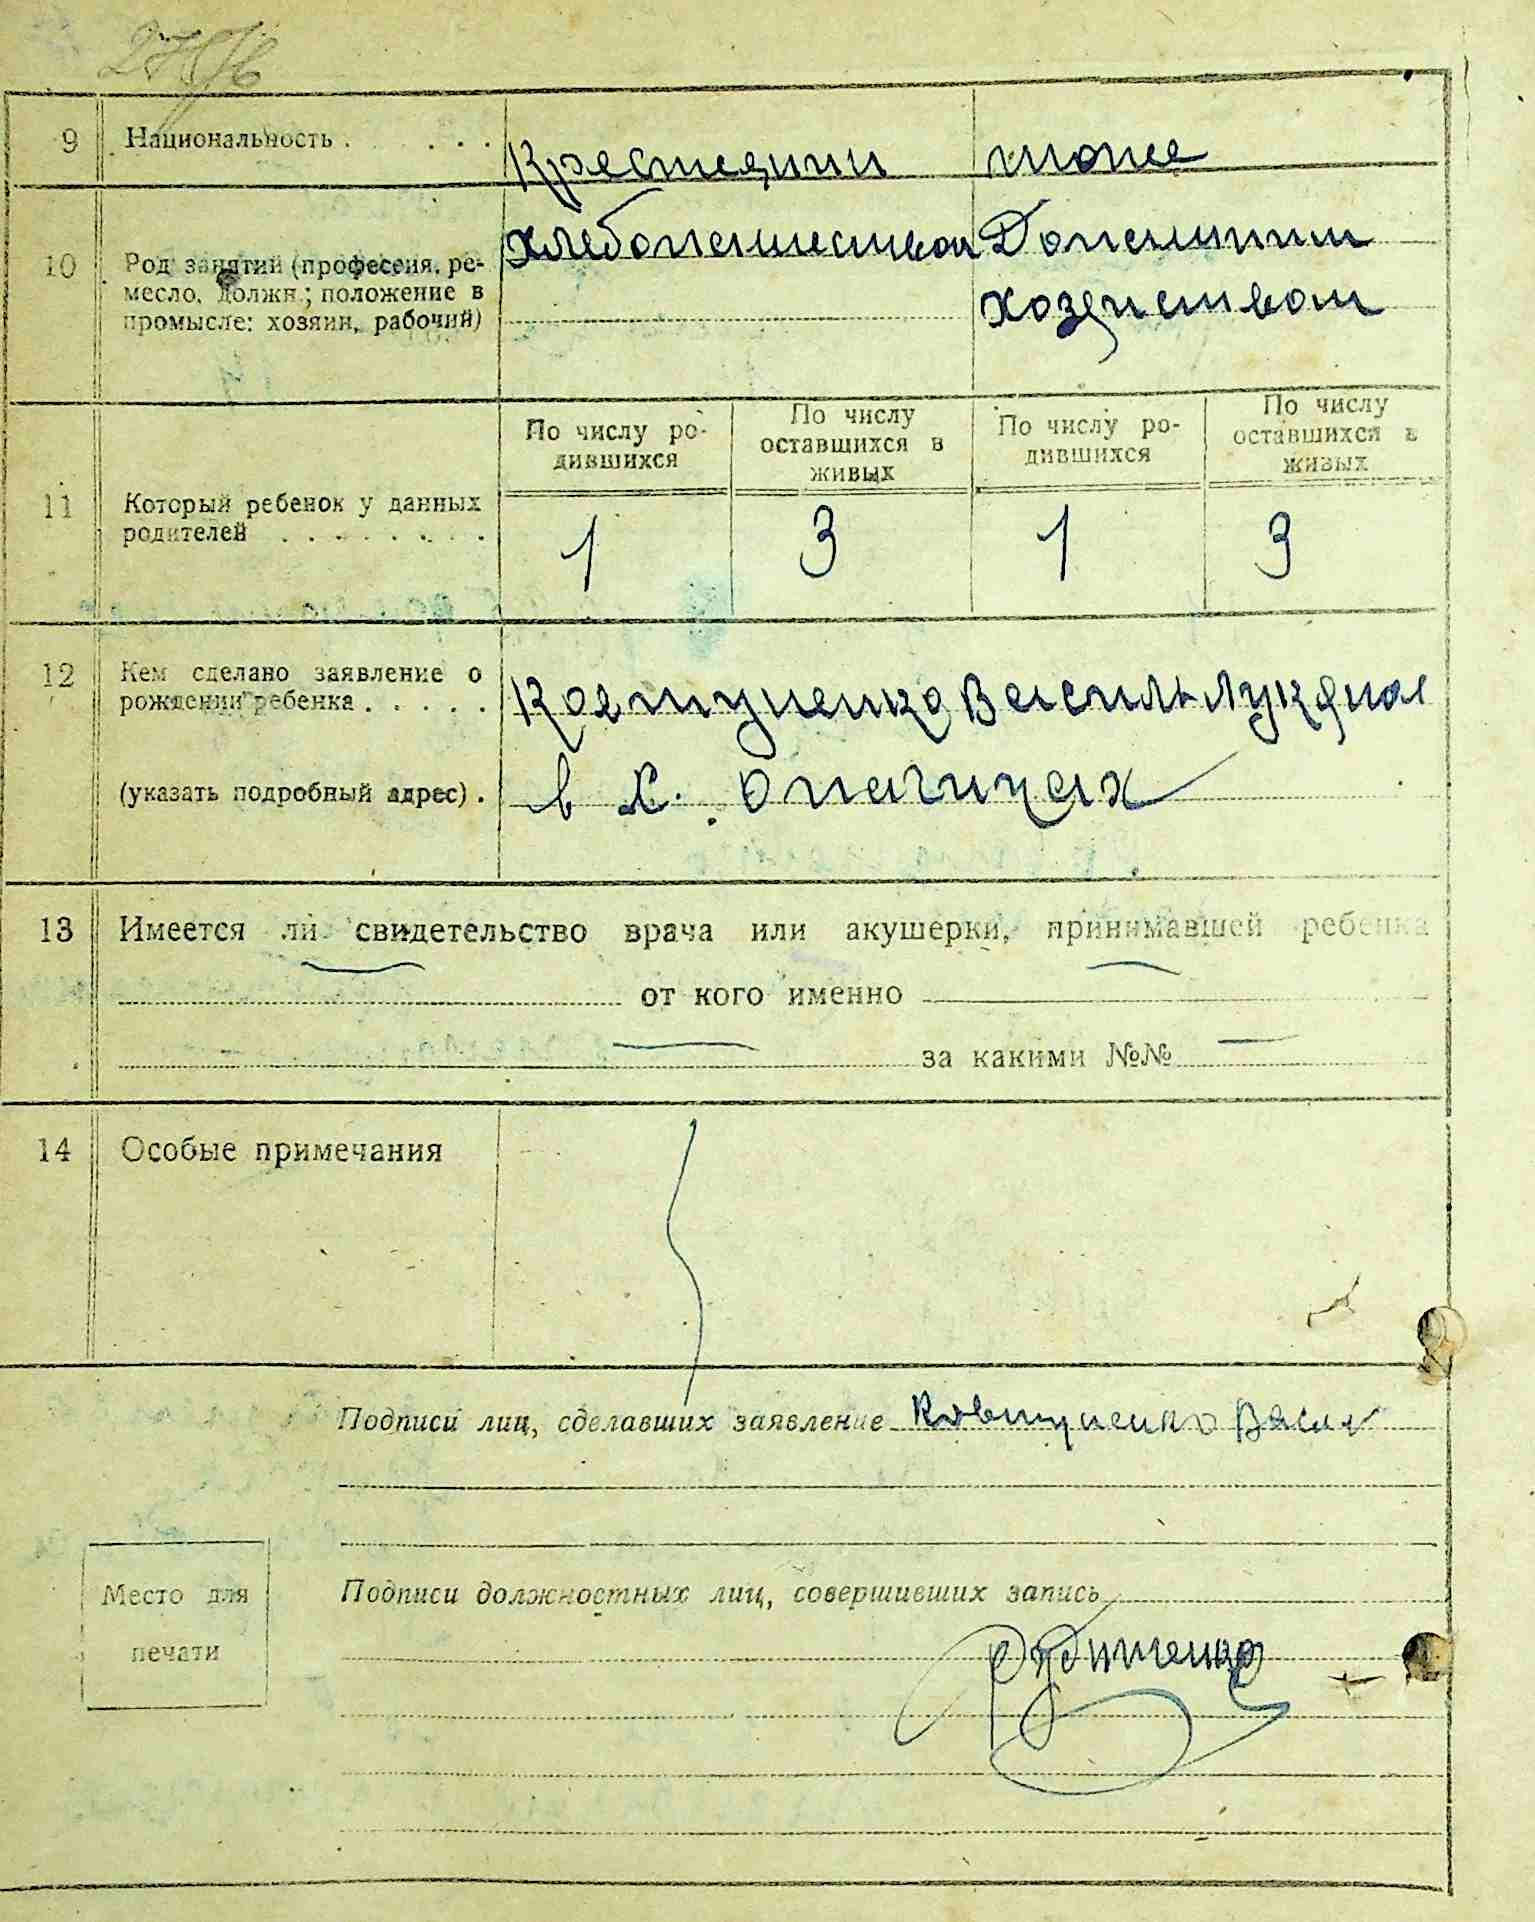 9 Национальность . . . . . Крестянин тоже
10 Род занятий (профессия, ре-
месло, должн.; положение в
промысле: хозяин, рабочий)
Хлебопашеством Домашним
хозяиством
11 Который ребенок у данных
родителей . . . . . . . .
По числу ро-
дившихся
По числу
оставшихся в
живых
По числу ро-
дившихся
По числу
оставшихся в
живых
1 3 1 3
12 Кем сделано заявление о
рождении ребенка . . . . .
Василь
(указать подробный адрес) .
в х.
13 Имеется ли свидетельство врача или акушерки, принимавшей ребенка
от кого именно
за какими №№
14 Особые примечания
Подписи лиц, сделавших заявление
Место для
печати
Подписи должностных лиц, совершивших запись